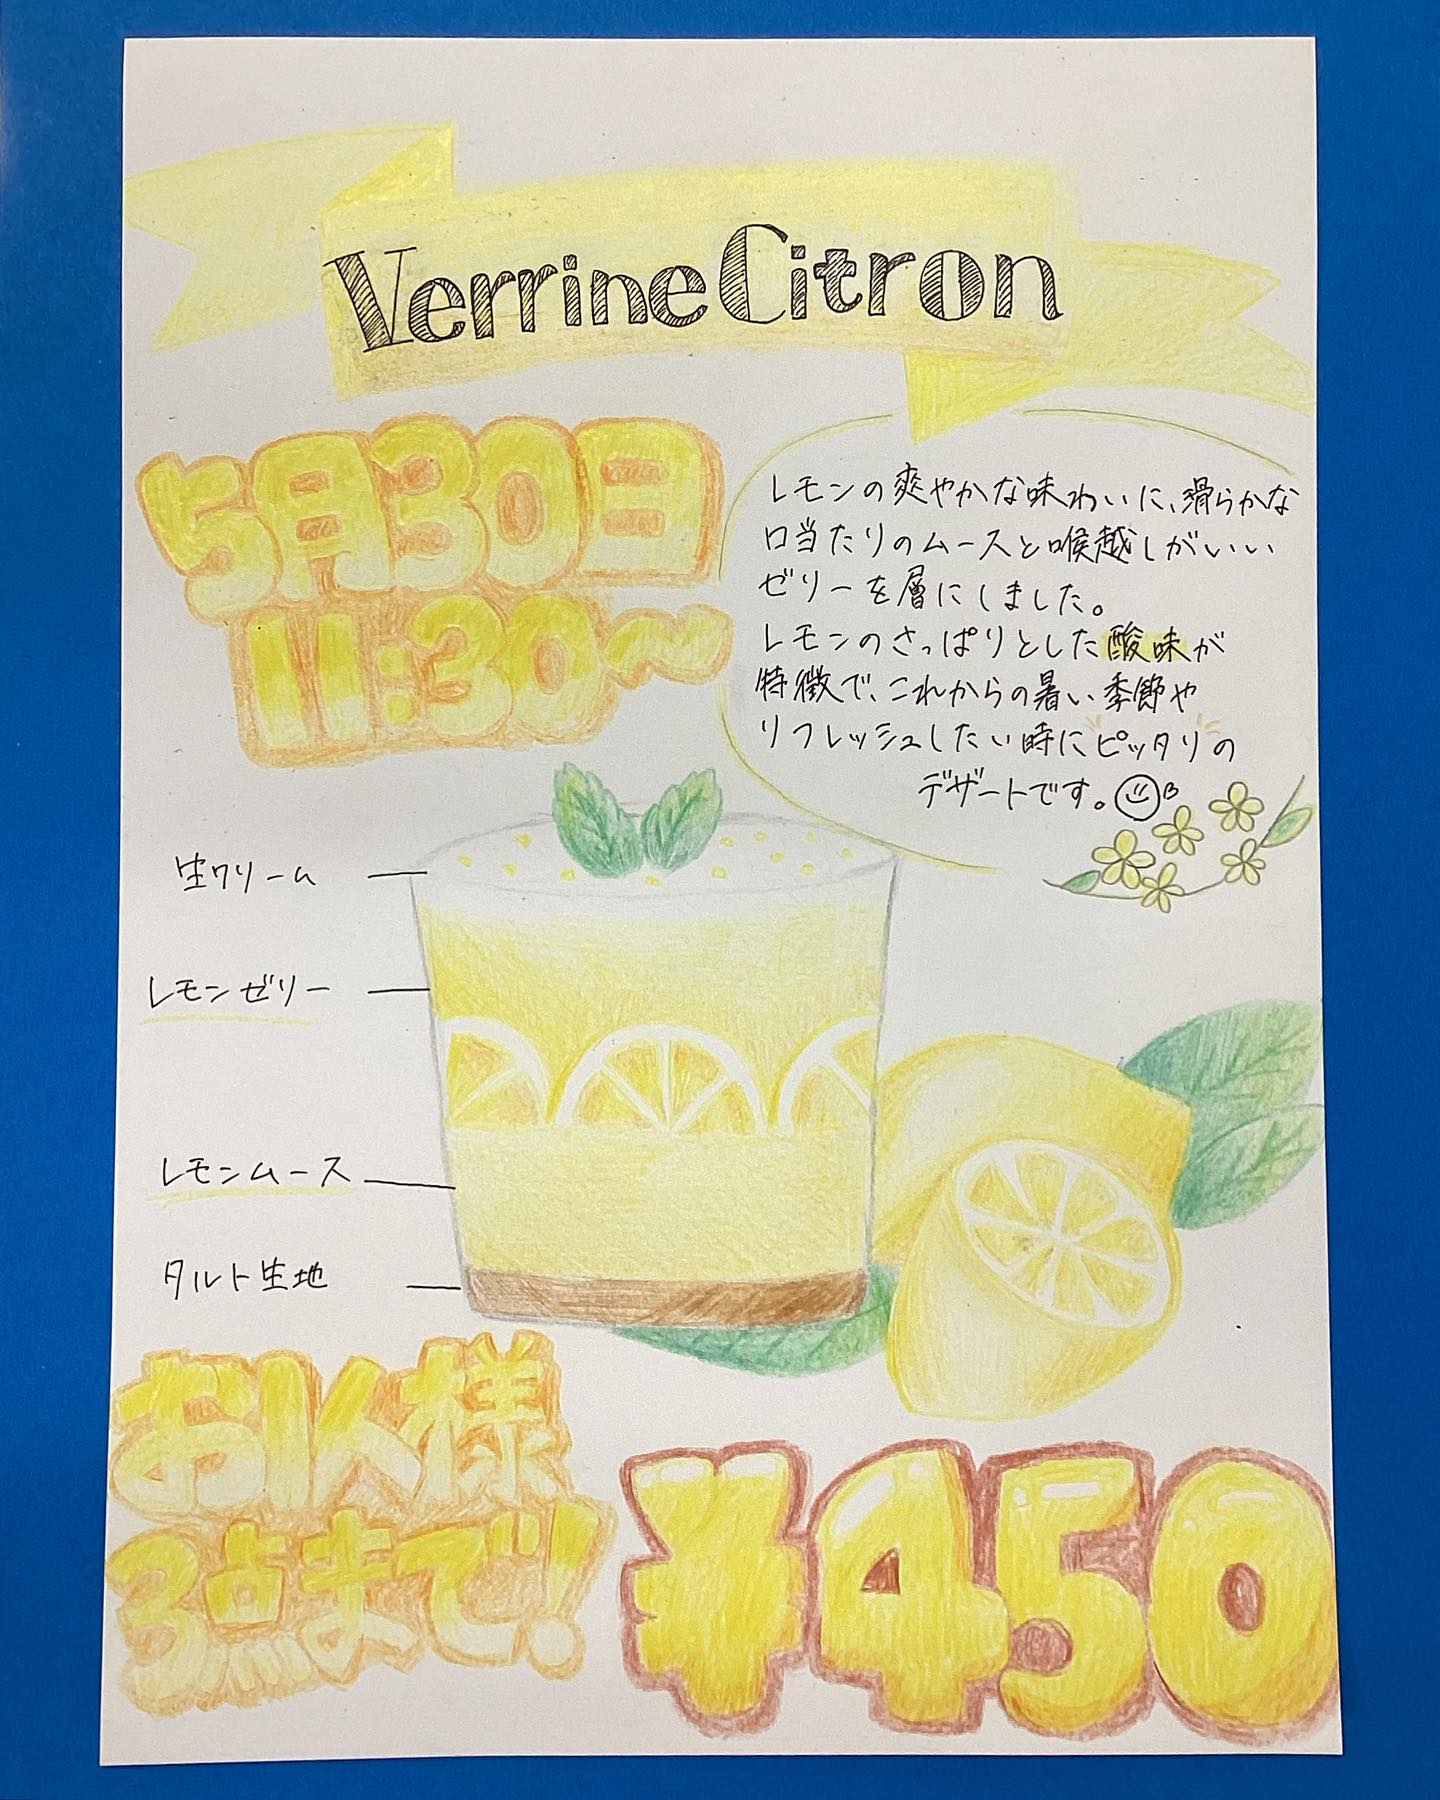 Verrine Citron
5月30日
11:30〜
レモンの爽やかな味わいに、滑らかな
口当たりのムースと喉越しがいい
ゼリーを層にしました。
レモンのさっぱりとした酸味が
特徴で、これからの暑い季節や
リフレッシュしたい時にピッタリの
デザートです。
生クリーム
レモンゼリー
レモンムース
タルト生地
お1人様
3点まで!
¥450